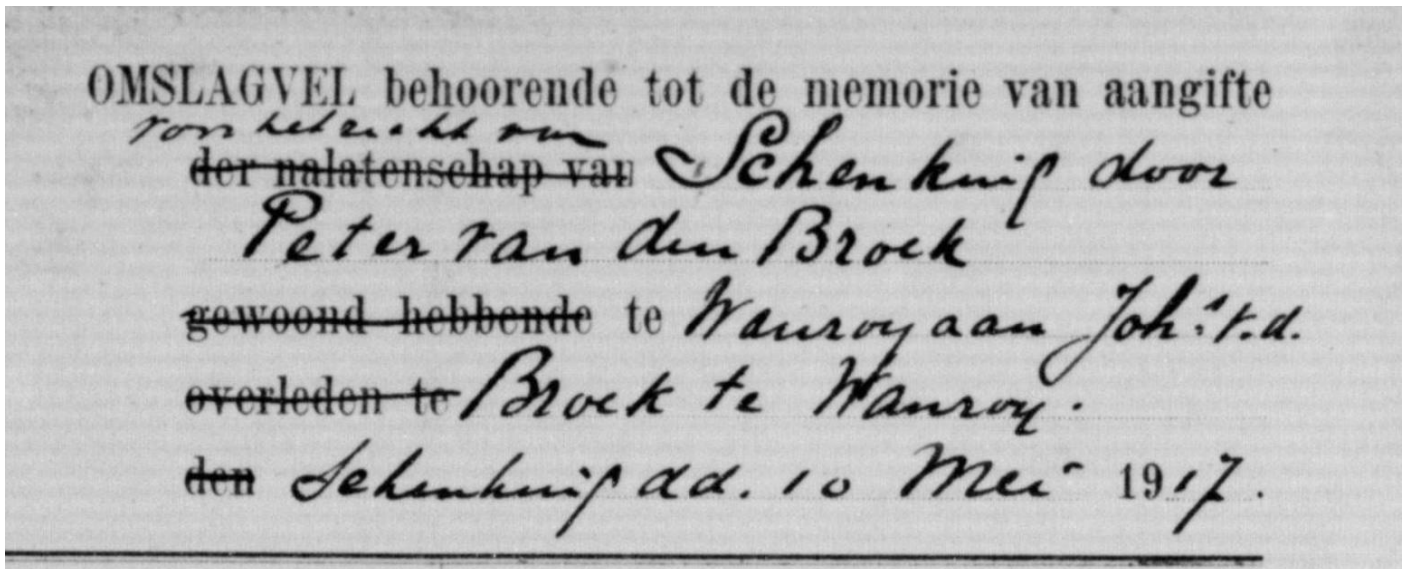 OMSLAGVEL behoorende tot de memorie van aangifte
van het recht van
der nalatenschap van Schenking door
Peter van den Broek
gewoond hebbende te Wanroy aan Joh.s v.d.
overleden te Broek te Wanroy.
den Schenking dd. 10 Mei 1917.